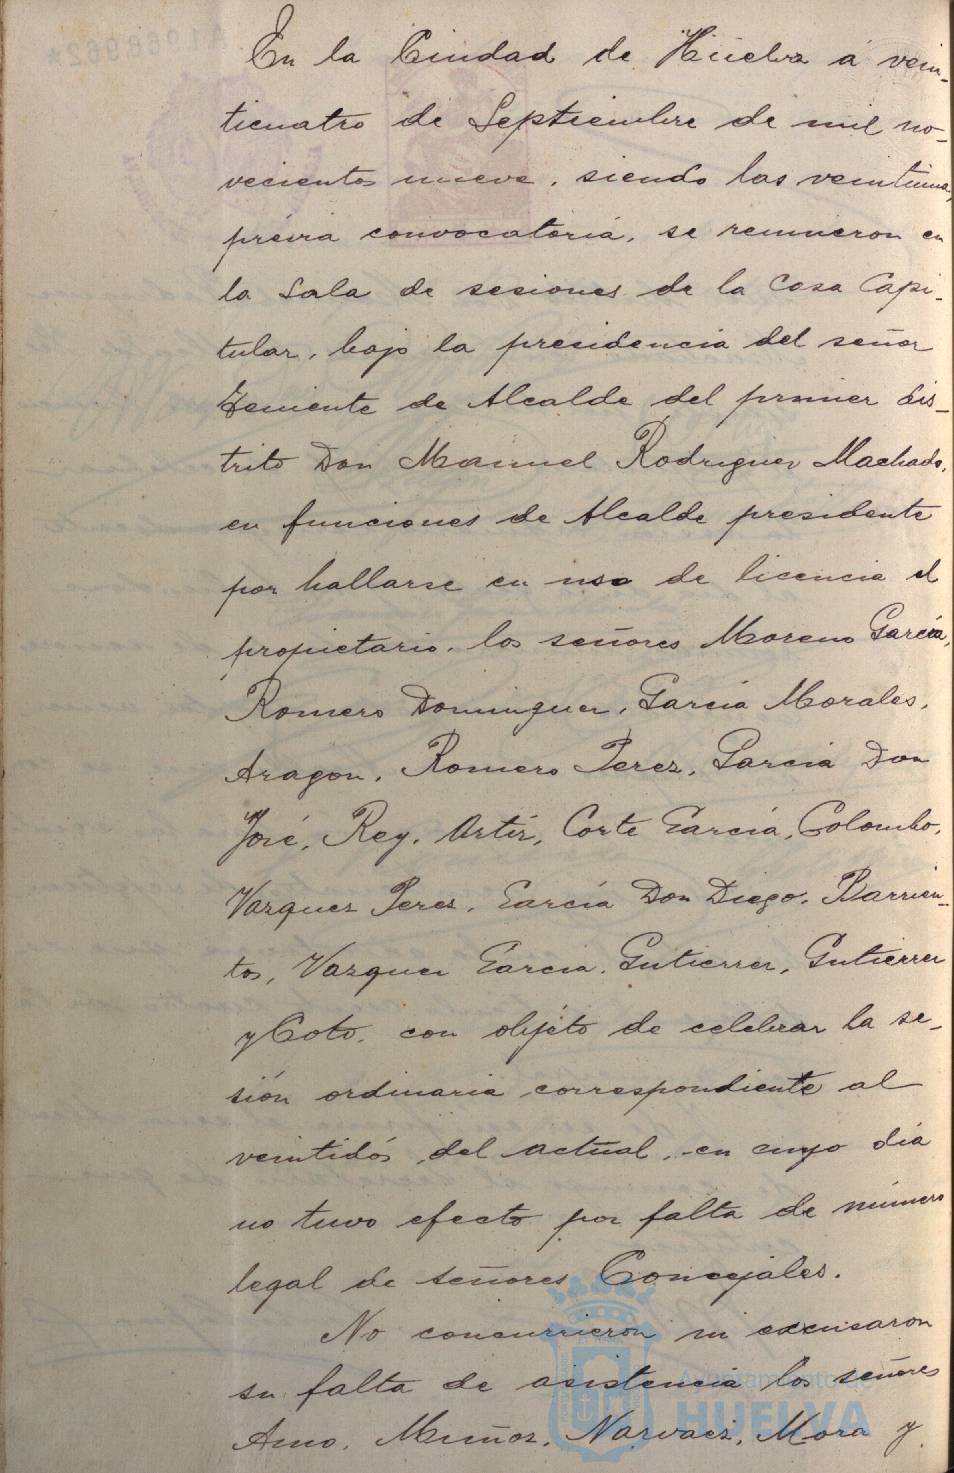 En la Ciudad de Huelva á vein-
ticuatro de Septiembre de mil no-
vecientos nueve, siendo las veintiuna,
prévia convocatoria, se reunieron en
la Sala de sesiones de la Casa Capi-
tular, bajo la presidencia del señor
Teniente de Alcalde del primer dis-
trito Don Manuel Rodriguez Machado,
en funciones de Alcalde presidente
por hallarse en uso de licencia el
propietario, los señores Moreno García,
Romero Dominguez, García Morales,
Aragon, Romero Perez, Garcia Don
José, Rey, Ortiz, Corte Garcia, Colombo,
Vazquez Perez, García Don Diego, Barrien-
tos, Vazquez Garcia, Gutierrez, Gutierrez
y Coto, con objéto de celebrar la se-
sión ordinaria correspondiente al
veintidós del actual, en cuyo dia
no tuvo efecto por falta de número
legal de señores Concejales.
No concurrieron ni excusaron
su falta de asistencia los señores
Amo, Muñoz, Narvaez, Mora y
Ayuntamiento de
HUELVA